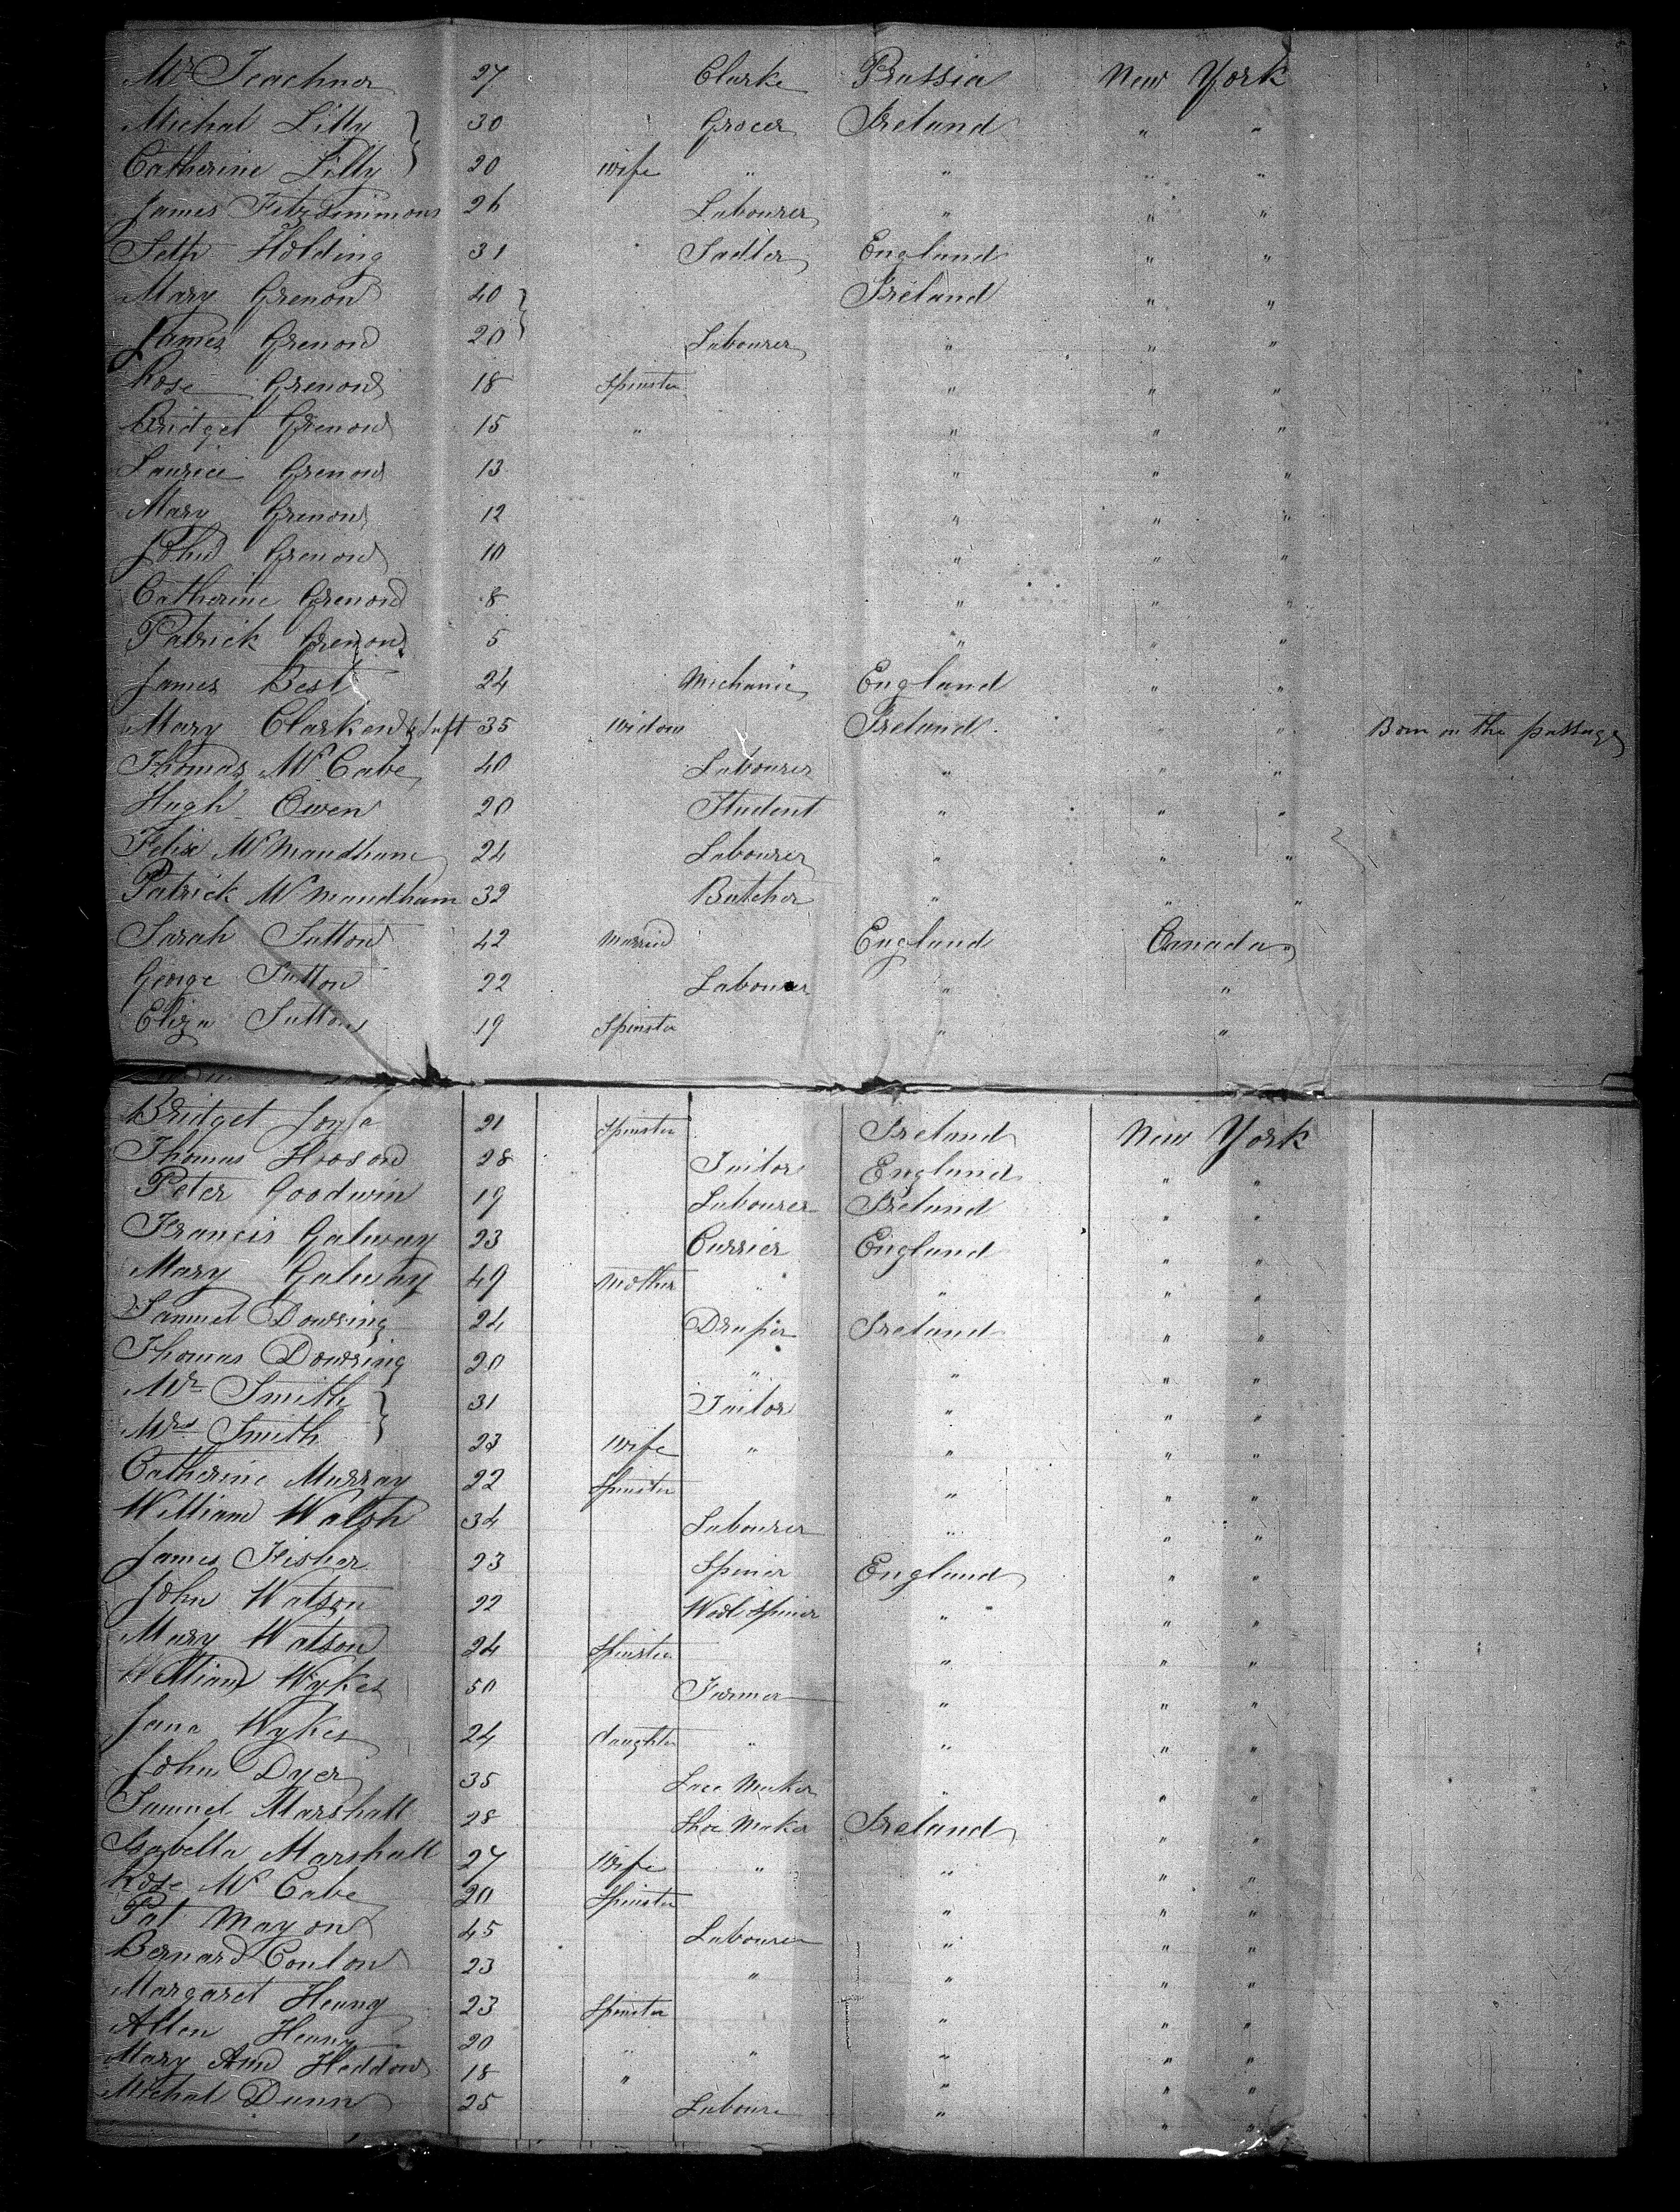 Mr Teachner 27 Clarke Prussia New York
Michal Lilly } 30 Grocer Ireland " "
Catherine Lilly } 20 wife " " " "
James Fitzsimmons 26 Labourer " " "
Seth Holding 31 Sadler England " "
Mary Grenon 40 } Ireland " "
James Grenon 20 } Labourer " " "
Rose Grenon 18 Spinster " " "
Bridget Grenon 15 " " " "
Laurice Grenon 13 " " "
Mary Grenon 12 " " "
John Grenon 10 " " "
Catherine Grenon 8 " " "
Patrick Grenon 5 " " "
James Best 24 Mechanic England " "
Mary Clarken & Inft 35 Widow Ireland " " Born on the passage
Thomas Mc Cabe 40 Labourer " " "
Hugh Owen 20 Student " " "
Felix McMandham 24 Labourer " " "
Patrick McMandham 32 Butcher " " "
Sarah Sutton 42 Married England Canada
George Sutton 22 Labourer " "
Eliza Sutton 19 Spinster " "
Bridget Joyce 21 Spinster Ireland New York
Thomas 28 Tailor England " "
Peter Goodwin 19 Labourer Ireland " "
Francis Galway 23 Currier England " "
Mary Galway 49 Mother " " " "
Samuel Dowsing 24 Draper Ireland " "
Thomas Dowsing 20 " " " "
Mr Smith } 31 Tailor " " "
Mrs Smith } 23 Wife " " " "
Catherine Murray 22 Spinster " " "
William Walsh 34 Labourer " " "
James Fisher 23 Spiner England " "
John Watson 22 Wool Spiner " " "
Mary Watson 24 Spinster " " "
William Wykes 50 Farmer " " "
Jane Wykes 24 daughter " " " "
John Dyer 35 Lace Maker " " "
Samuel Marshall 28 Shoe Maker Ireland " "
Isabella Marshall 27 Wife " " " "
Rose Mc Cabe 20 Spinster " " "
Pat Mayon 45 Labourer " " "
Bernard Conlon 23 " " " "
Margaret Heany 23 Spinster " " "
Allen Heany 20 " " " " "
Mary Ann Heddon 18 " " " "
Michal Dunn 25 Laboure " " "